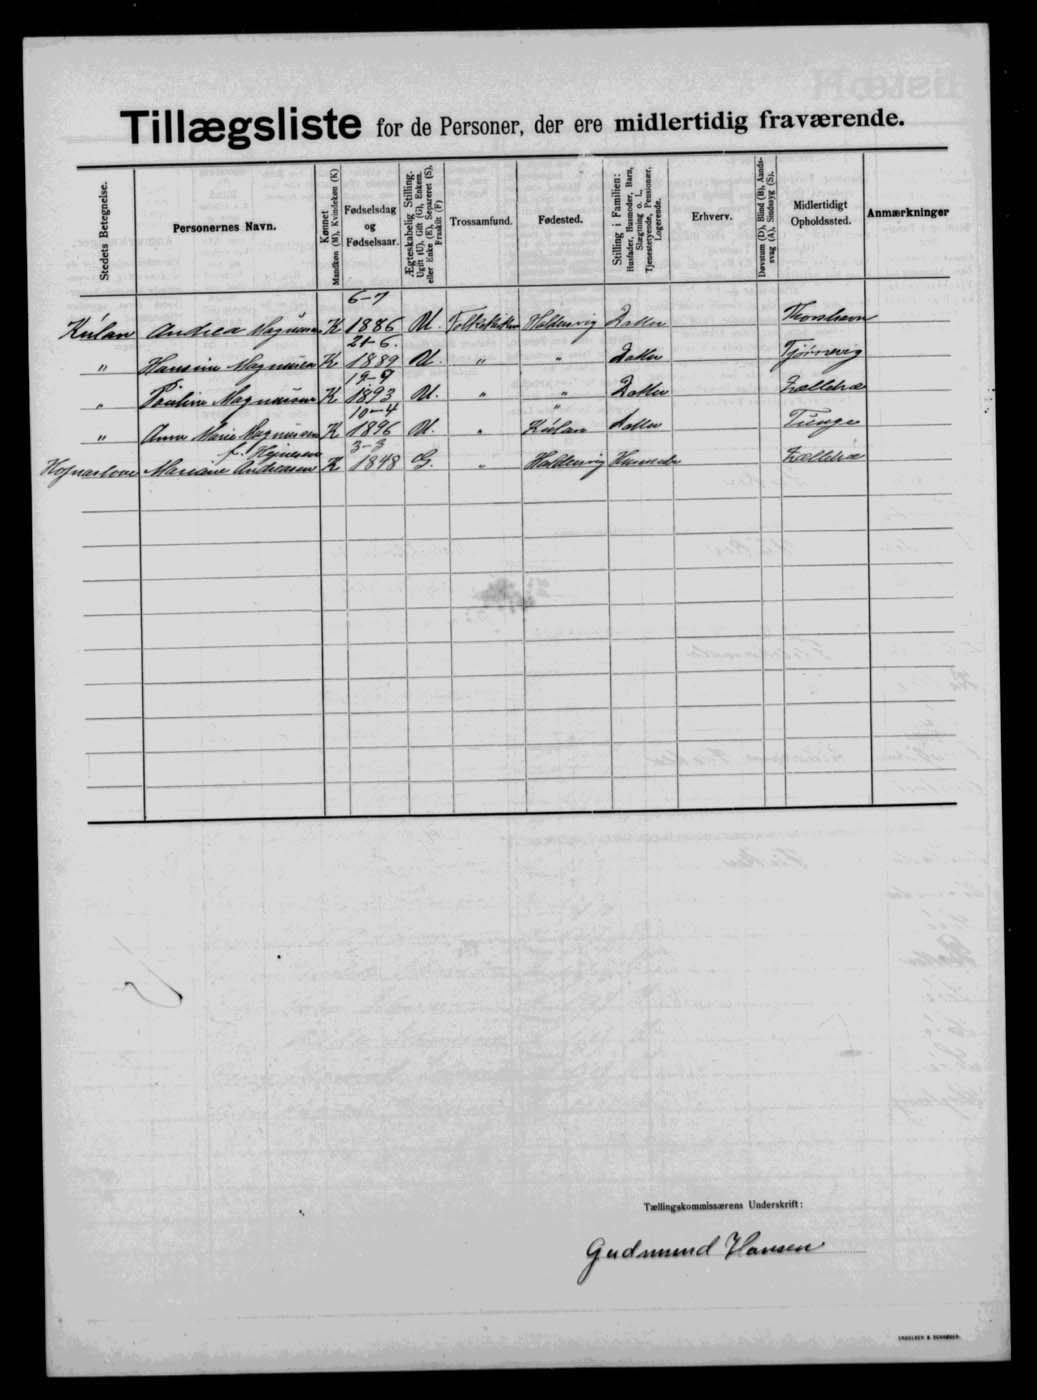 Tillægsliste for de Personer, der ere midlertidig fraværende.
Stedets Betegnelse.
Personernes Navn.
Kønnet
Mandkøn (M), Kvindekøn (K)
Fødselsdag
og
Fødselsaar.
Ægteskabelig Stilling.
Ugift (U), Gift (G), Enkem.
eller Enke (E), Separeret (S),
Fraskilt (F)
Trossamfund.
Fødested.
Stilling i Familien:
Husfader, Husmoder, Barn,
Slægtning o. l.,
Tjenestetyende, Pensionær,
Logerende.
Erhverv.
Døvstum (D), Blind (B), Aands-
svag (A), Sindssyg (S).
Midlertidigt
Opholdssted.
Anmærkninger
6-7
Kúlan Andrea Magnusen K 1886 U. Folkekirken Haldersvig Datter Thorshavn
21-6.
" Hansine Magnusen K 1889 U. " " Datter Tjørnevig
19-9
" Pouline Magnusen K 1893 U. " " Datter
10-4 "
" Anna Marie Magnusen K 1896 U. " Kúlan Datter
f. Hejnesen 3-3
Mariane Andreasen K 1848 G. " Haldersvig Husmoder
Tællingskommissærens Underskrift:
Gudmund Hansen